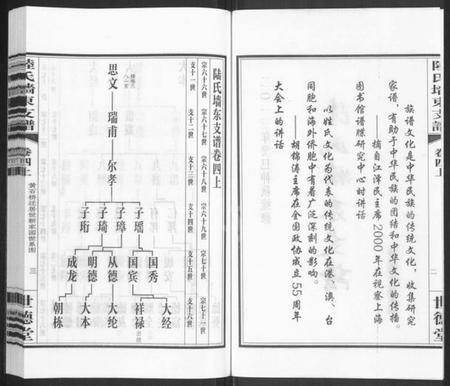 陆氏墙东支谱
卷四上
二
世德堂
族谱文化是中华民族的传统文化，收集研究
家谱，有助于中华民族的团结和中华文化的传播。
——摘自江泽民主席2000年在视察上海
图书馆谱牒研究中心时讲话
以姓氏文化为代表的传统文化在港、澳、台
同胞和海外侨胞中有着广泛深刻的影响。
——胡锦涛主席在全国政协成立55周年
大会上的讲话
陆氏墙东支谱卷四上
宗六十六世 宗六十七世 宗六十八世 宗六十九世 宗七十世 宗七十一世
支十一世 支十二世 支十三世 支十四世 支十五世 支十六世
思文——瑞甫——尔孝
子瑶 子璋 子琦 子珩
国秀 国宾 从德 明德 成龙
大经 祥禄 大纶 大本 朝栋
陆氏墙东支谱
卷四上
黄石桥迁居世新家园世系图
三
世德堂